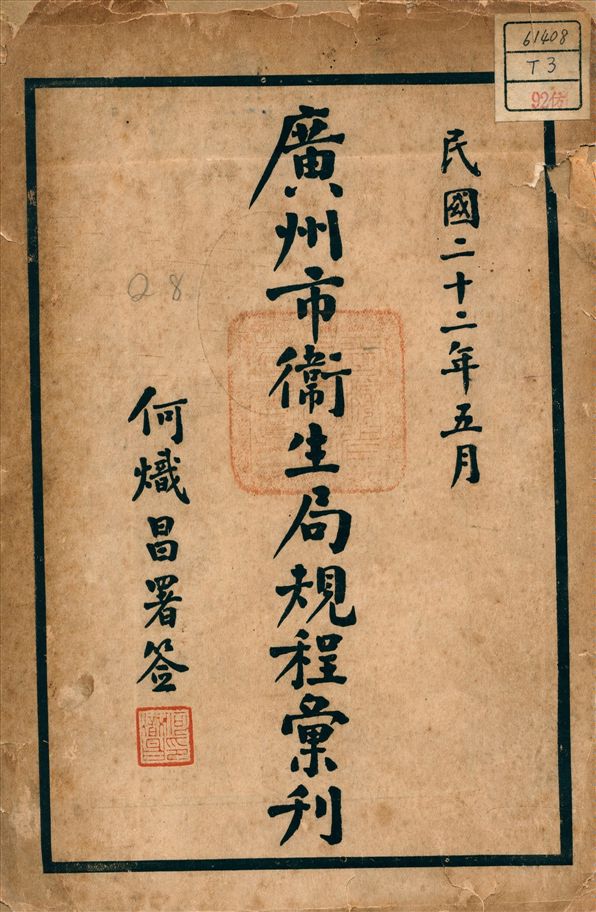 61408
T3
92仿
民國二十二年五月
廣州市衞生局規程彙刊
何熾昌署签
28